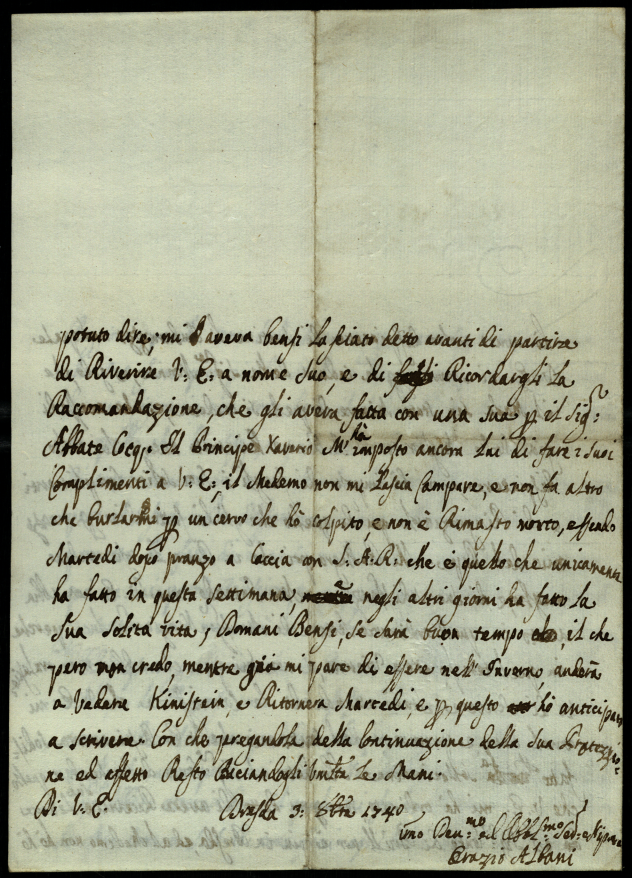 potuto dire; mi aveva bensi lasciato detto avanti di partire
di Riverire V: E: a nome suo, e di Ricordargli La
Raccomandazione, che gli aveva fatta con una sua p il Sig:r
Abbate Cocq. Il Principe Xaverio M'hà imposto ancora lui di fare i suoi
Complimenti a V: E; il Medemo non mi Lascia Campare, e non fa altro
che burlarmi p un cervo che hò colpito, e non è Rimasto morto, essendo
Martedi dopo pranzo a Caccia con S: A: R: che è quello che unicamente
ha fatto in questa settimana, negli altri giorni ha fatto la
sua solita vita; Domani Bensi, se sarà buon tempo, il che
pero non credo, mentre già mi pare di essere nell' Inverno, anderà
a Vedere Kinistein, e Ritornerà Martedi, e p questo hò anticipato
a scrivere Con che pregandola della Continuazione della sua Protezio-
ne ed affetto Resto Baciandogli le Mani.
Di V: E: Dresda 3: 8bre 1740
Devmo ed Obblmo
Orazio Albani